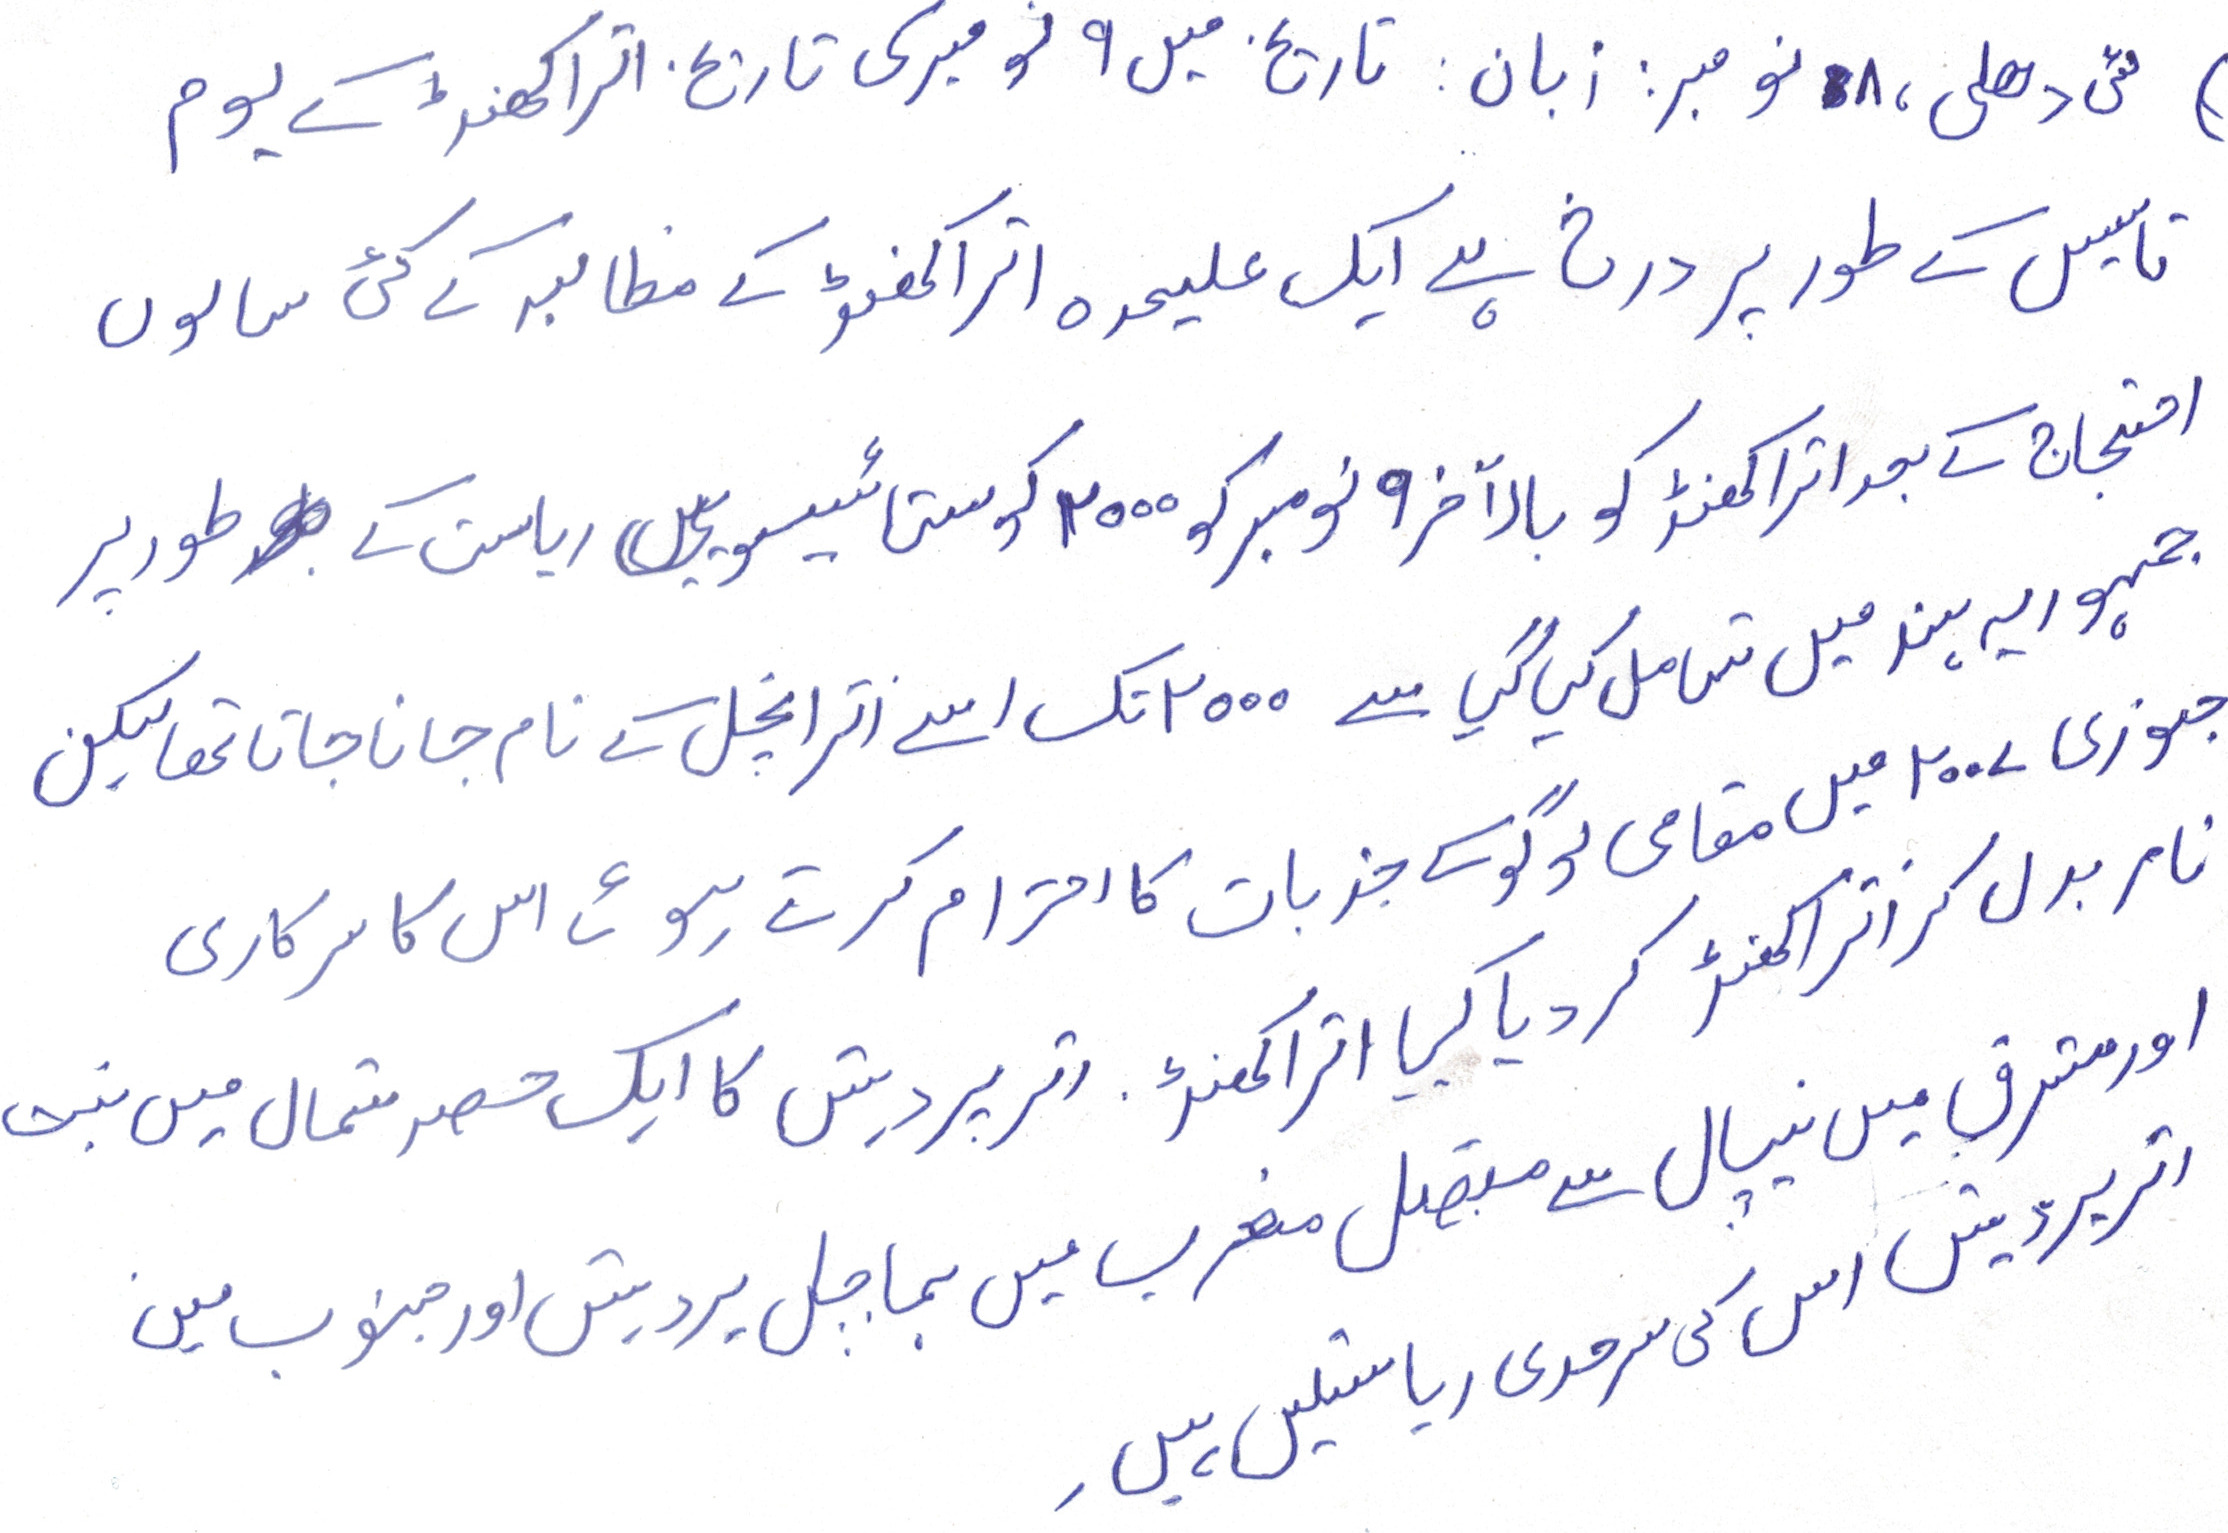 ) نئی دھلی، ۸ نومبر: زبان: تاریخ میں ۹ نومبر کی تاریخ. اتراکھنڈ کے یوم
تاسیس کے طور پر درج ہے ایک علیحدہ اتراکھنڈ کے مطالبہ کے کئی سالوں
احتجاج کے بعد اتراکھنڈ کو بالآخر ۹ نومبر کو ۲۰۰۰ کو ستائیسویں ریاست کے طور پر
جمہوریہ ہند میں شامل کیا گیا سے ۲۰۰۰ تک اسے اترانچل کے نام جانا جاتا تھا لیکن
جنوری ۲۰۰۷ میں مقامی لوگو کے جذبات کا احترام کرتے ہوئے اس کا سرکاری
نام بدل کر اتراکھنڈ کر دیا گیا اتراکھنڈ. اتر پردیش کا ایک حصہ شمال میں تبت
اور مشرق میں نیپال سے متصل مغرب میں ہماچل پردیش اور جنوب میں
اتر پردیش اس کی سرحدی ریاستیں ہیں